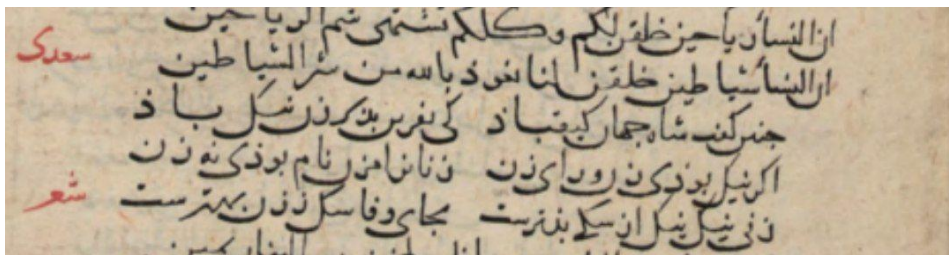 ان النسا ریاحین خلقن لکم وکلکم تشتهی شم الریاحین
سعدی
ان النسا شیاطین خلقن لنا نعوذ بالله من شر الشیاطین
جنین کفت شاه جهان کیقباذ که نفرین بذ بر زن نیک باذ
اکر نیک بوذی زن و رای زن زنانرا مزن نام بوذی نه زن
شعر
زنی نیک نیک از سکی بذترست بجای وفا سک ز زن بهترست